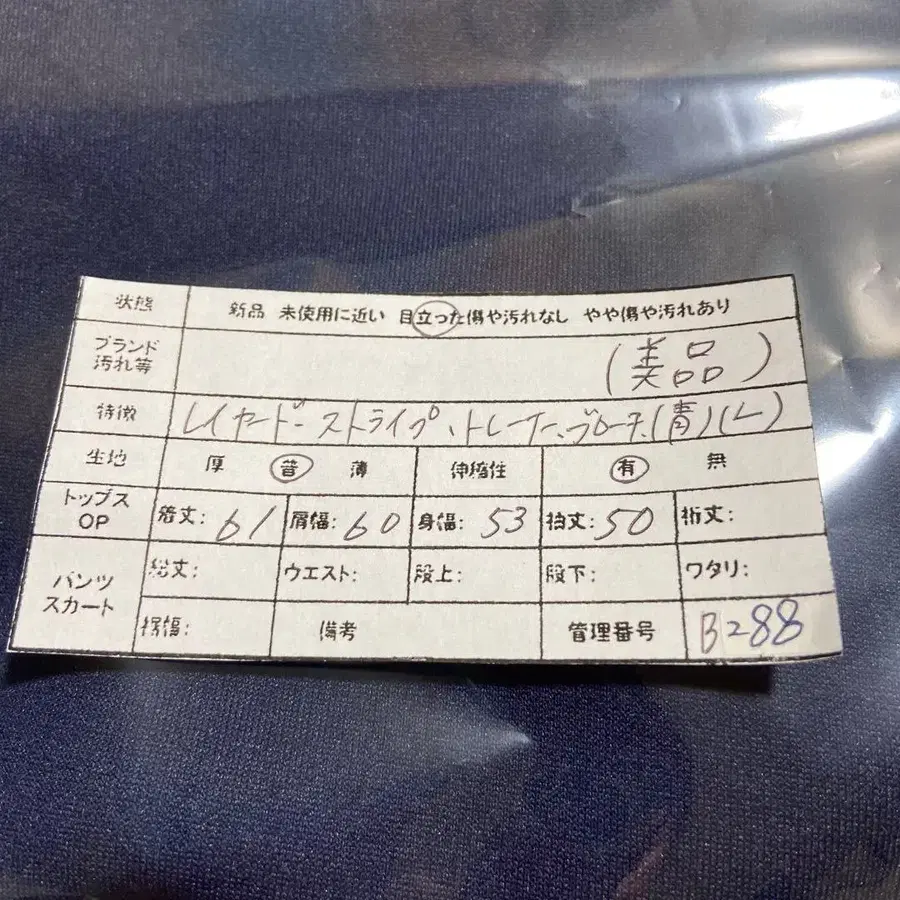 状態 新品 未使用に近い 目立った傷や汚れなし やや傷や汚れあり
ブランド
汚れ等 (美品)
特徴 レイヤード・ストライプ、トレーナー、ブローチ、(青)(L)
生地 厚 普 薄 伸縮性 有 無
トップス
OP
着丈: 61 肩幅: 60 身幅: 53 袖丈: 50 裄丈:
パンツ
スカート
総丈: ウエスト: 股上: 股下: ワタリ:
裾幅: 備考 管理番号 B288